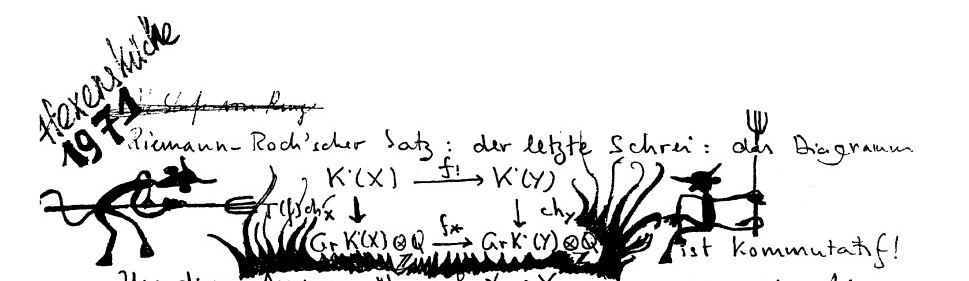 Hexenküche
1971
Riemann-Roch'scher Satz: der letzte Schrei: das Diagramm
K˙(X) f! → K˙(Y)
T(f)ch_X ↓ ↓ ch_Y
Gr K˙(X) ⊗_Z Q f* → Gr K˙(Y) ⊗_Z Q
ist kommutatif!